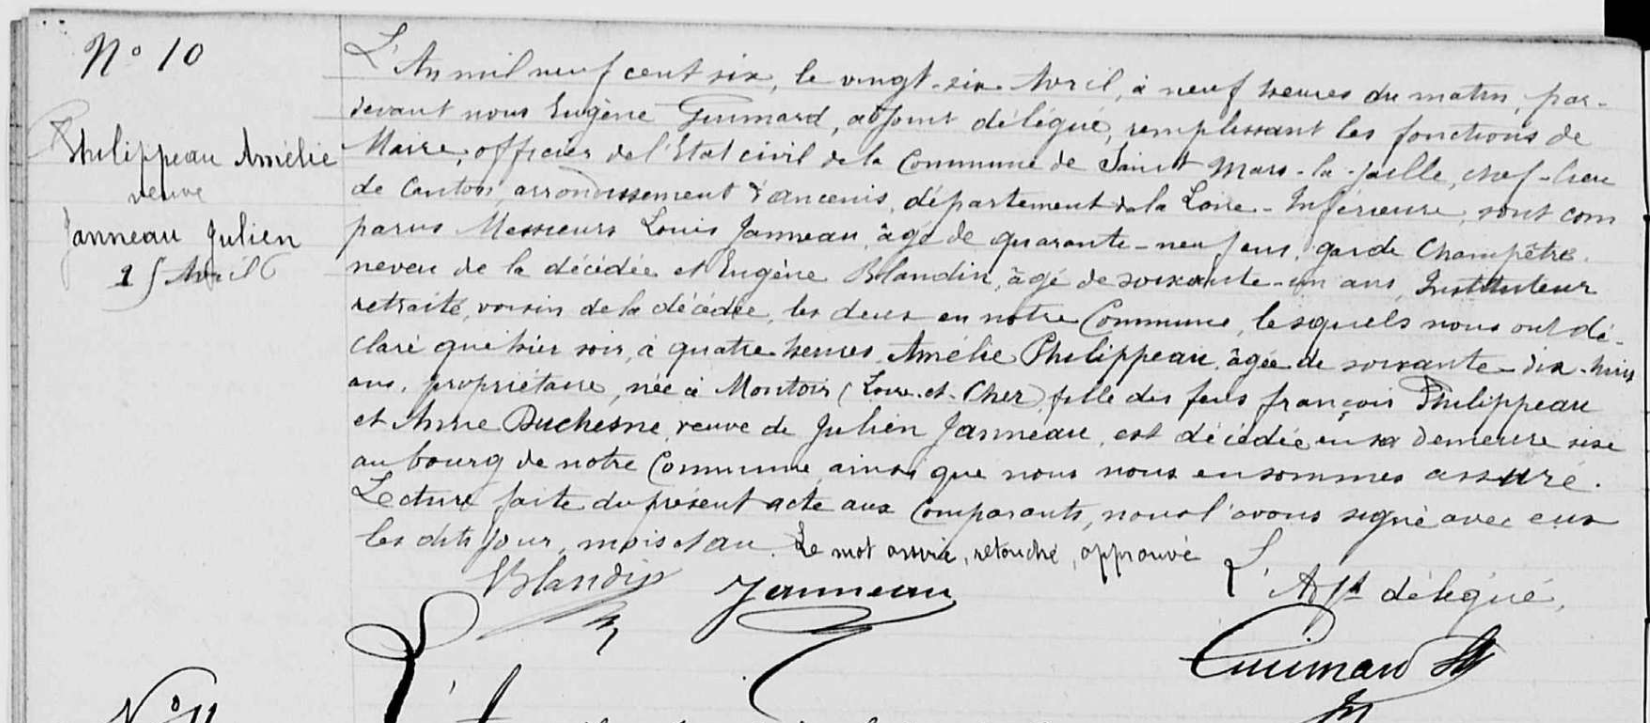 N° 10
Philippeau Amélie
veuve
Janneau Julien
25 Avril
L'An mil neuf cent six, le vingt-six Avril, à neuf heures du matin, par-
devant nous Eugène Guimard, adjoint délégué, remplissant les fonctions de
Maire, officier de l'Etat civil de la Commune de Saint Mars-la-Jaille, chef-lieu
de Canton, arrondissement d'ancenis, département de la Loire-Inférieure, sont com
parus Messieurs Louis Janneau, âgé de quarante-neuf ans, garde Champêtre,
neveu de la décédée et Eugène Blandin, âgé de soixante-un ans, Instituteur
retraité, voisin de la décédée, les deux en notre Commune, lesquels nous ont dé-
claré que hier soir, à quatre heures, Amélie Philippeau, âgée de soixante-dix-huit
ans, propriétaire, née à Montoir (Loir-et-Cher), fille des feus françois Philippeau
et Anne Duchesne, veuve de Julien Janneau, est décédée en sa demeure sise
au bourg de notre Commune, ainsi que nous nous en sommes assuré.
Lecture faite du présent acte aux Comparants, nous l'avons signé avec eux
les dits jour, mois et an. Le mot assuré, retouché, approuvé
Blandin Janneau L'Ajt délégué,
Guimard
N° 11